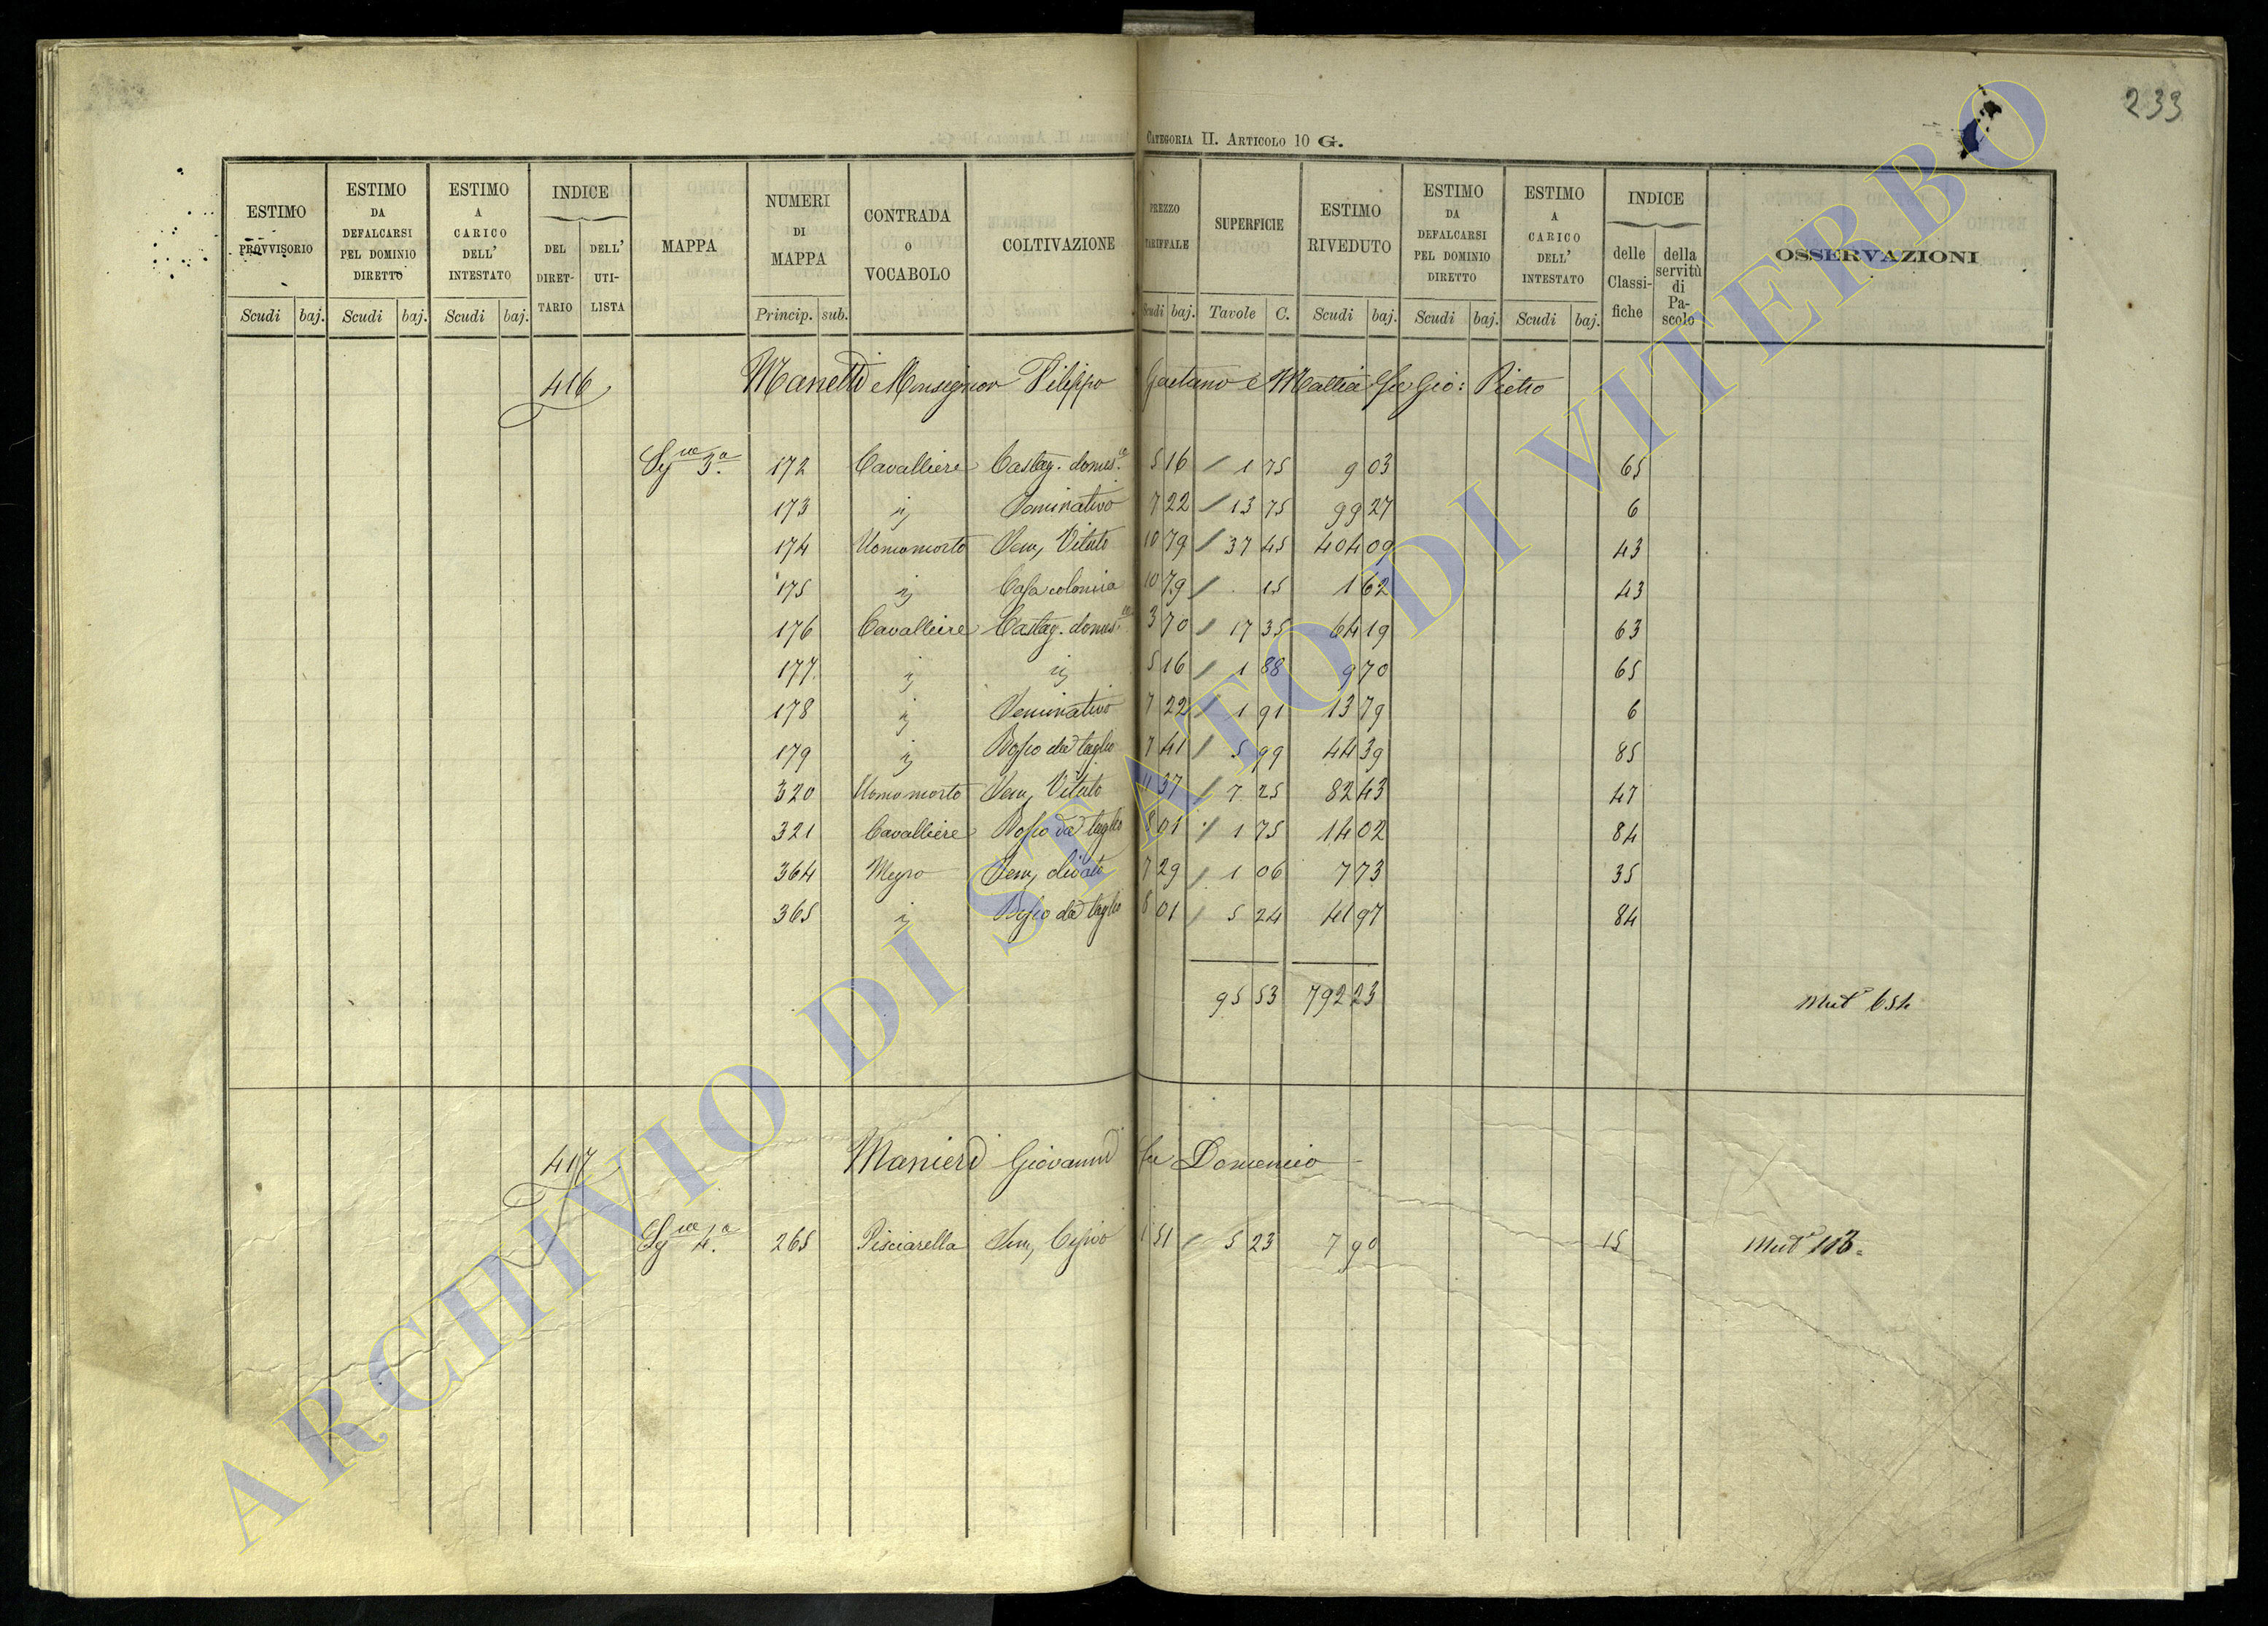 233
CATEGORIA II. ARTICOLO 10 G.
ESTIMO PROVVISORIO
ESTIMO DA DEFALCARSI PEL DOMINIO DIRETTO
ESTIMO A CARICO DELL' INTESTATO
INDICE
DEL DIRET-TARIO
DELL' UTI-LISTA
MAPPA
NUMERI DI MAPPA
CONTRADA O VOCABOLO
COLTIVAZIONE
PREZZO TARIFFALE
SUPERFICIE
ESTIMO RIVEDUTO
ESTIMO DA DEFALCARSI PEL DOMINIO DIRETTO
ESTIMO A CARICO DELL' INTESTATO
INDICE
delle Classi-fiche
della servitù di Pa-scolo
OSSERVAZIONI
Scudi baj. Scudi baj. Scudi baj. Princip. sub. Scudi baj. Tavole C. Scudi baj. Scudi baj. Scudi baj.
416 Manetti Monsignor Filippo Gaetano e Mattia fu Gio: Pietro
3.a 172 Cavalliere Castag. domes.co 5 16 / 1 75 9 03 65
173 Seminativo 7 22 / 13 75 99 27 6
174 Uomomorto Sem, Vitato 10 79 / 37 45 404 09 43
175 Casa colonica 10 79 / 15 1 62 43
176 Cavalliere Castag. domes.co 3 70 / 17 35 64 19 63
177 5 16 / 1 88 9 70 65
178 Seminativo 7 22 / 1 91 13 79 6
179 Bosco da taglio 7 41 / 5 99 44 39 85
320 Uomomorto Sem, Vitato 11 37 / 7 25 82 43 47
321 Cavalliere Bosco da taglio 8 01 / 1 75 14 02 84
364 Sem, olivato 7 29 / 1 06 7 73 35
365 Bosco da taglio 8 01 / 5 24 41 97 84
95 53 792 23 Mut 654
417 Manieri Giovanni fu Domenico
4.a 265 Pisciarella 1 51 / 5 23 7 90 15 Mut 113
ARCHIVIO DI STATO DI VITERBO